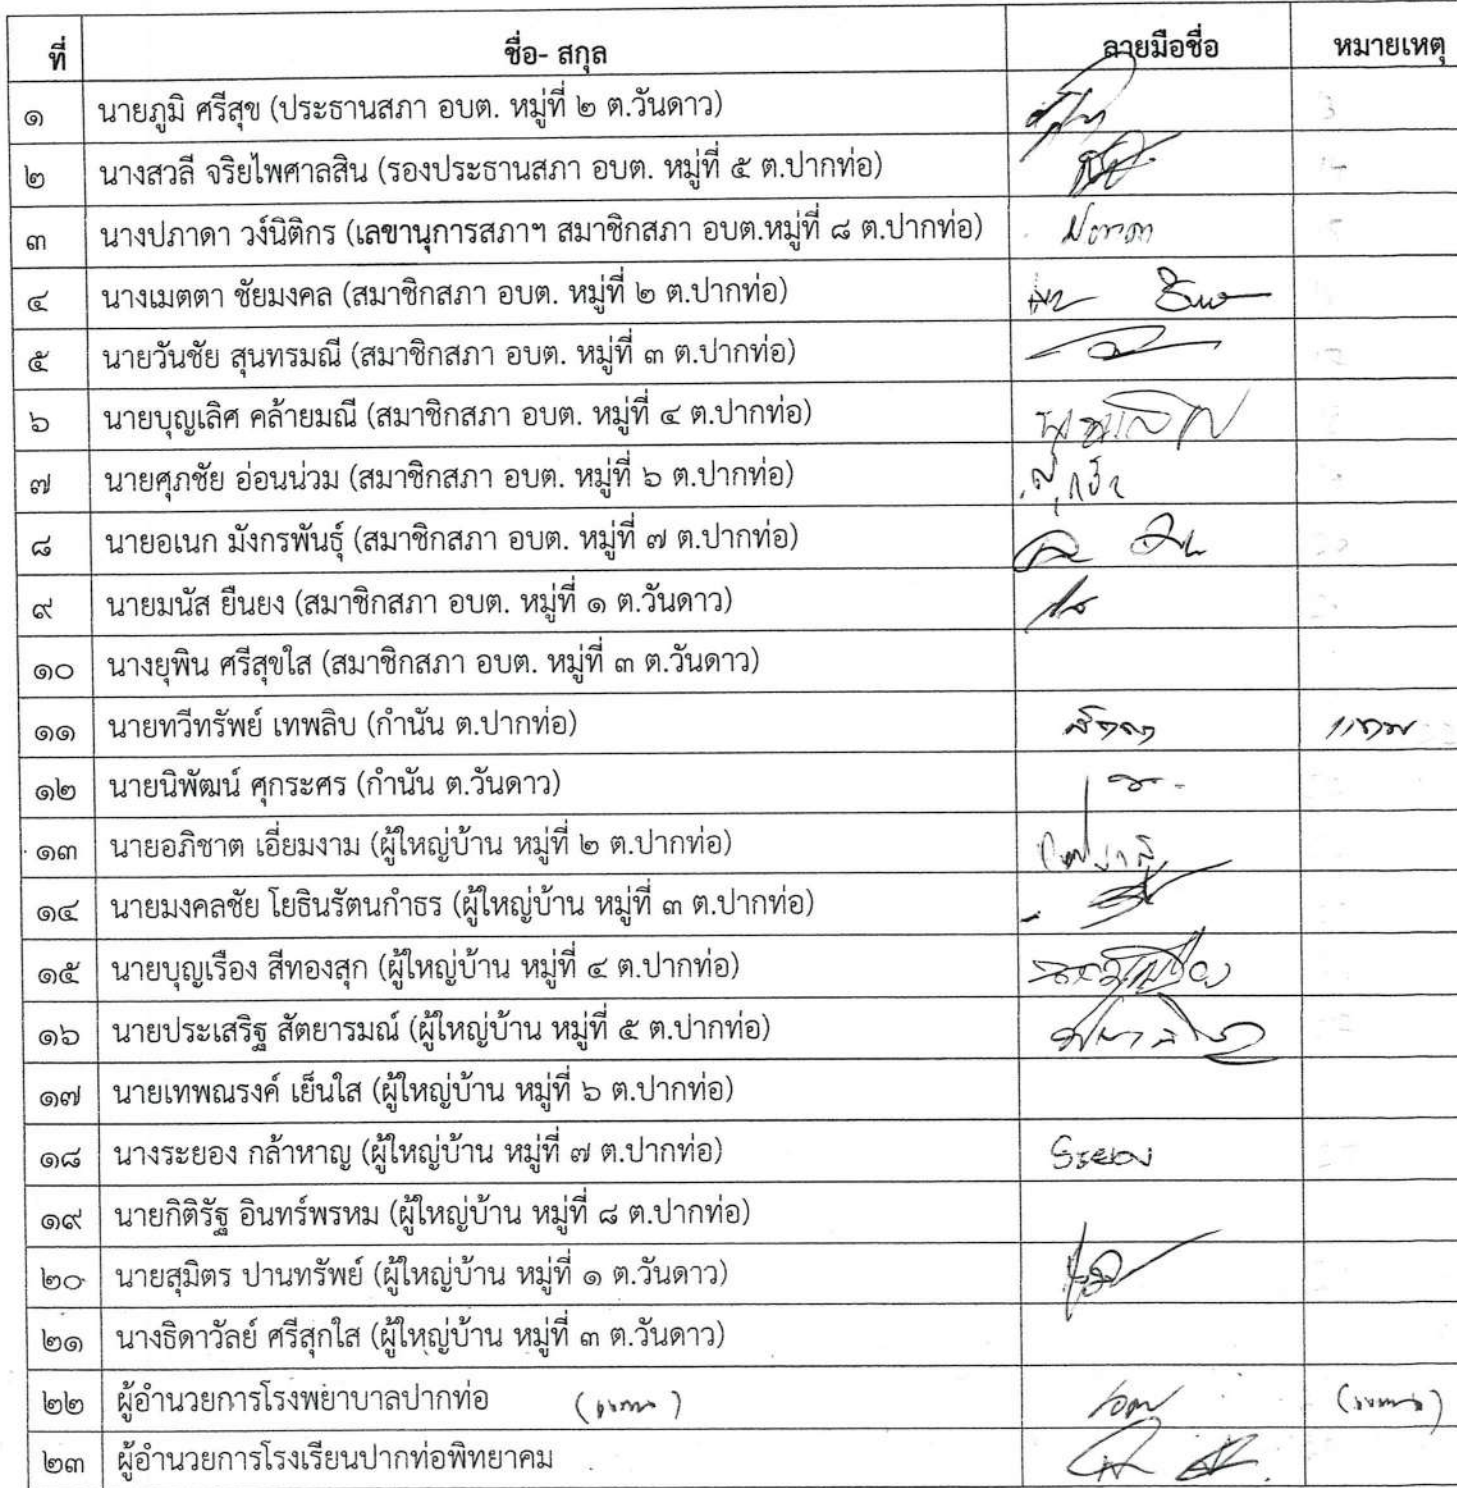 ที่ ชื่อ- สกุล ลายมือชื่อ หมายเหตุ
๑ นายภูมิ ศรีสุข (ประธานสภา อบต. หมู่ที่ ๒ ต.วันดาว)
๒ นางสวลี จริยไพศาลสิน (รองประธานสภา อบต. หมู่ที่ ๕ ต.ปากท่อ)
๓ นางปภาดา วงํนิติกร (เลขานุการสภาฯ สมาชิกสภา อบต.หมู่ที่ ๘ ต.ปากท่อ)
๔ นางเมตตา ชัยมงคล (สมาชิกสภา อบต. หมู่ที่ ๒ ต.ปากท่อ)
๕ นายวันชัย สุนทรมณี (สมาชิกสภา อบต. หมู่ที่ ๓ ต.ปากท่อ)
๖ นายบุญเลิศ คล้ายมณี (สมาชิกสภา อบต. หมู่ที่ ๔ ต.ปากท่อ) บุญเลิศ
๗ นายศุภชัย อ่อนน่วม (สมาชิกสภา อบต. หมู่ที่ ๖ ต.ปากท่อ)
๘ นายอเนก มังกรพันธุ์ (สมาชิกสภา อบต. หมู่ที่ ๗ ต.ปากท่อ)
๙ นายมนัส ยืนยง (สมาชิกสภา อบต. หมู่ที่ ๑ ต.วันดาว)
๑๐ นางยุพิน ศรีสุขใส (สมาชิกสภา อบต. หมู่ที่ ๓ ต.วันดาว)
๑๑ นายทวีทรัพย์ เทพลิบ (กำนัน ต.ปากท่อ)
๑๒ นายนิพัฒน์ ศุกระศร (กำนัน ต.วันดาว)
๑๓ นายอภิชาต เอี่ยมงาม (ผู้ใหญ่บ้าน หมู่ที่ ๒ ต.ปากท่อ)
๑๔ นายมงคลชัย โยธินรัตนกำธร (ผู้ใหญ่บ้าน หมู่ที่ ๓ ต.ปากท่อ)
๑๕ นายบุญเรือง สีทองสุก (ผู้ใหญ่บ้าน หมู่ที่ ๔ ต.ปากท่อ)
๑๖ นายประเสริฐ สัตยารมณ์ (ผู้ใหญ่บ้าน หมู่ที่ ๕ ต.ปากท่อ)
๑๗ นายเทพณรงค์ เย็นใส (ผู้ใหญ่บ้าน หมู่ที่ ๖ ต.ปากท่อ)
๑๘ นางระยอง กล้าหาญ (ผู้ใหญ่บ้าน หมู่ที่ ๗ ต.ปากท่อ) ระยอง
๑๙ นายกิติรัฐ อินทร์พรหม (ผู้ใหญ่บ้าน หมู่ที่ ๘ ต.ปากท่อ)
๒๐ นายสุมิตร ปานทรัพย์ (ผู้ใหญ่บ้าน หมู่ที่ ๑ ต.วันดาว)
๒๑ นางธิดาวัลย์ ศรีสุกใส (ผู้ใหญ่บ้าน หมู่ที่ ๓ ต.วันดาว)
๒๒ ผู้อำนวยการโรงพยาบาลปากท่อ
๒๓ ผู้อำนวยการโรงเรียนปากท่อพิทยาคม